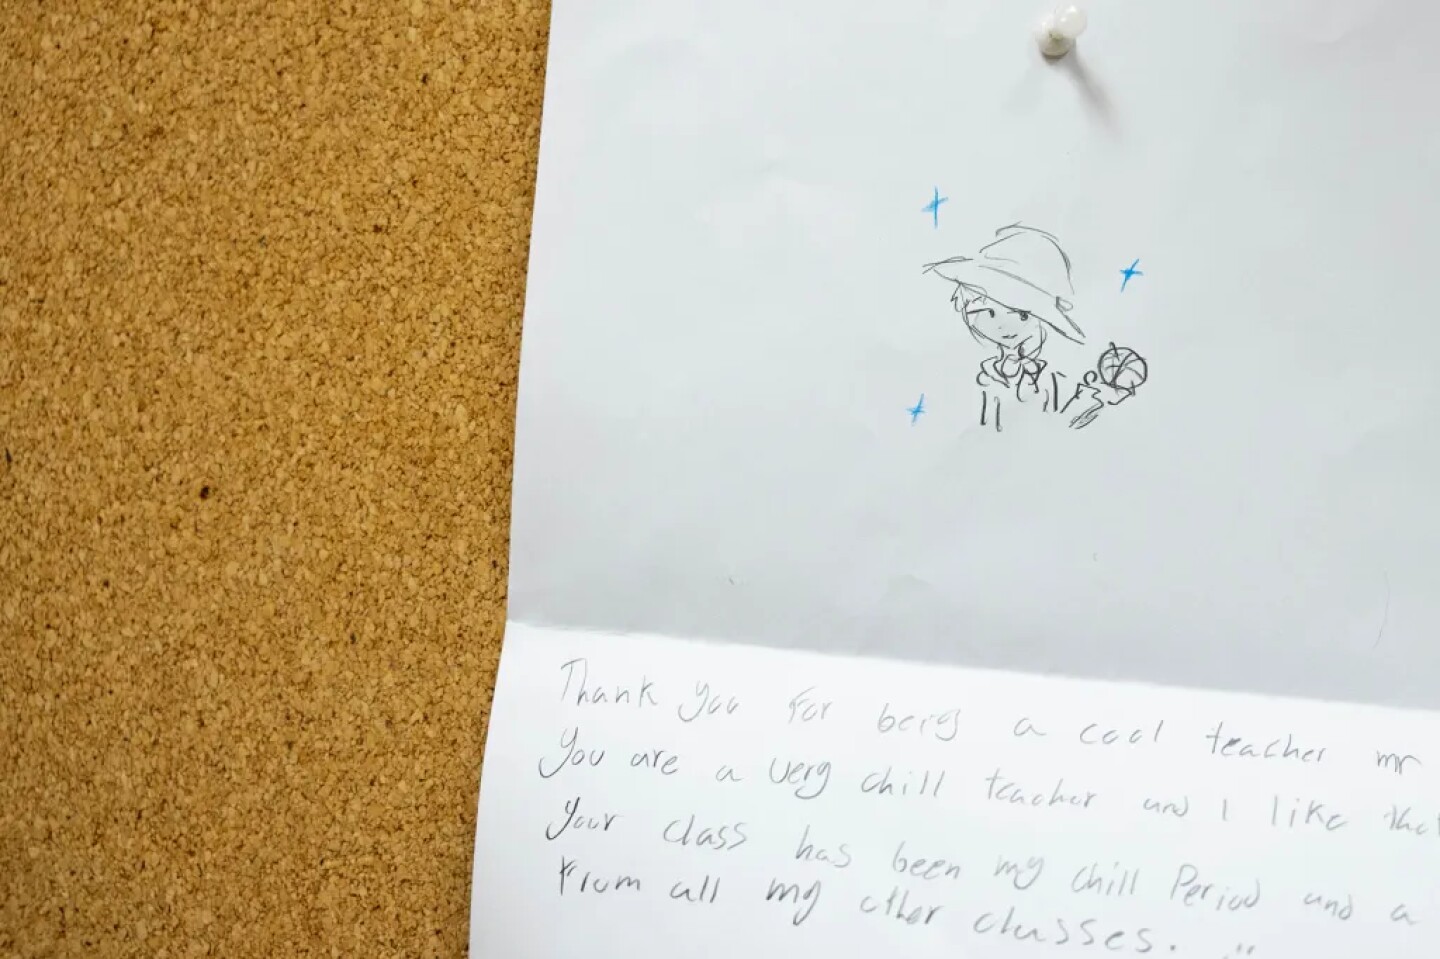 Thank you for being a cool teacher mr
You are a very chill teacher and I like that
your class has been my chill Period and a
from all my other classes. :)